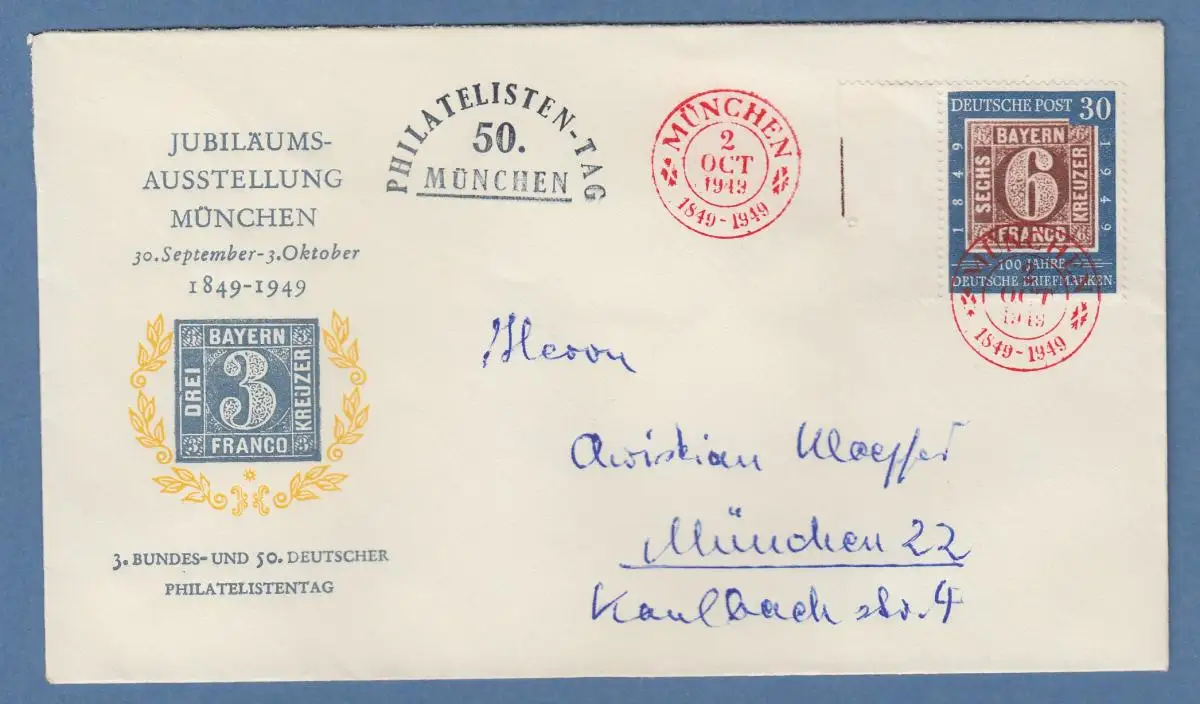 JUBILÄUMS-
AUSSTELLUNG
MÜNCHEN
30.September-3.Oktober
1849-1949
BAYERN
DREI
3
KREUZER
FRANCO
3. BUNDES- UND 50. DEUTSCHER
PHILATELISTENTAG
PHILATELISTEN-TAG
50.
MÜNCHEN
MÜNCHEN
2
OCT
1949
1849-1949
DEUTSCHE POST 30
1849
1949
BAYERN
SECHS
6
KREUZER
FRANCO
100 JAHRE
DEUTSCHE BRIEFMARKEN
MÜNCHEN
2
OCT
1949
1849-1949
Herrn
Christian
München 22
Kaulbachstr. 4